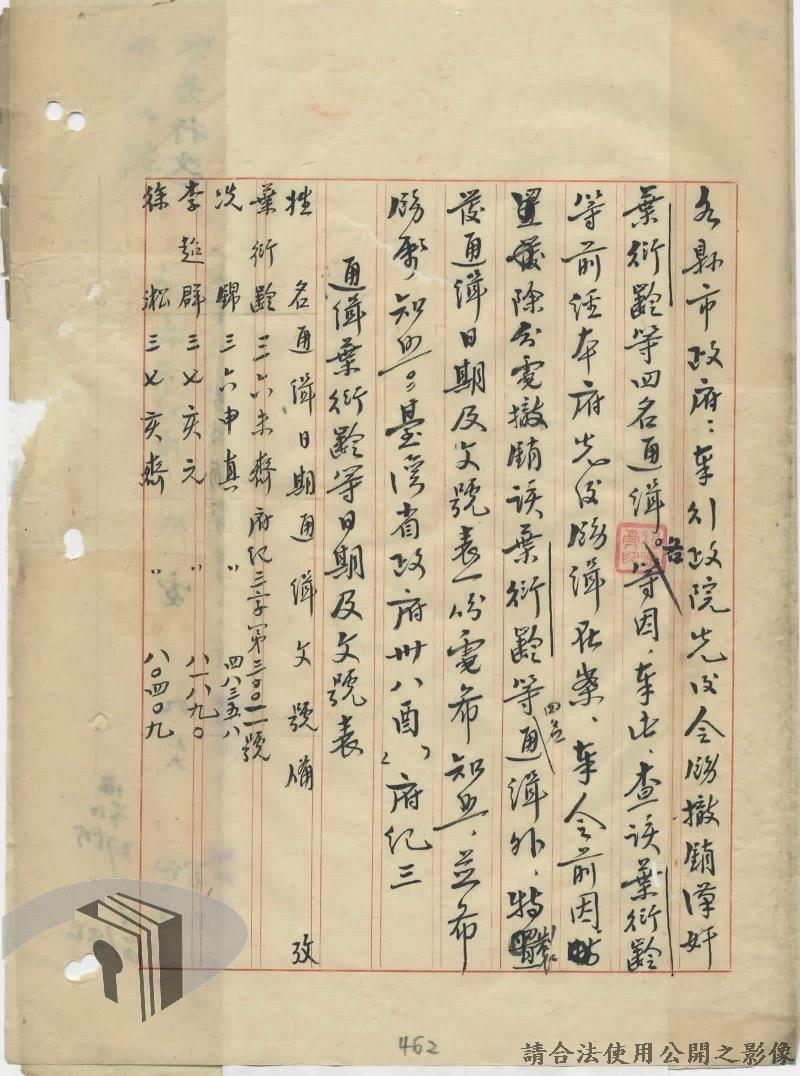 各縣市政府：奉行政院先後令飭撤銷漢奸
葉衍齡等四名通緝各等因，奉此，查該葉衍齡
等前經本府先後飭緝在案，奉令前因
除分電撤銷該葉衍齡等四名通緝外，特製
發通緝日期及文號表一份電希知照，並希
飭屬知照。臺灣省政府卅八酉( )府紀三
通緝葉衍齡等日期及文號表
姓名通緝日期通緝文號備攷
葉衍齡三六未齊府紀三字第三〇〇二號
冼錦三六申真〃四八三五八
李超群三七亥元〃八一八九〇
徐淞三七亥齊〃八〇四〇九
462
請合法使用公開之影像